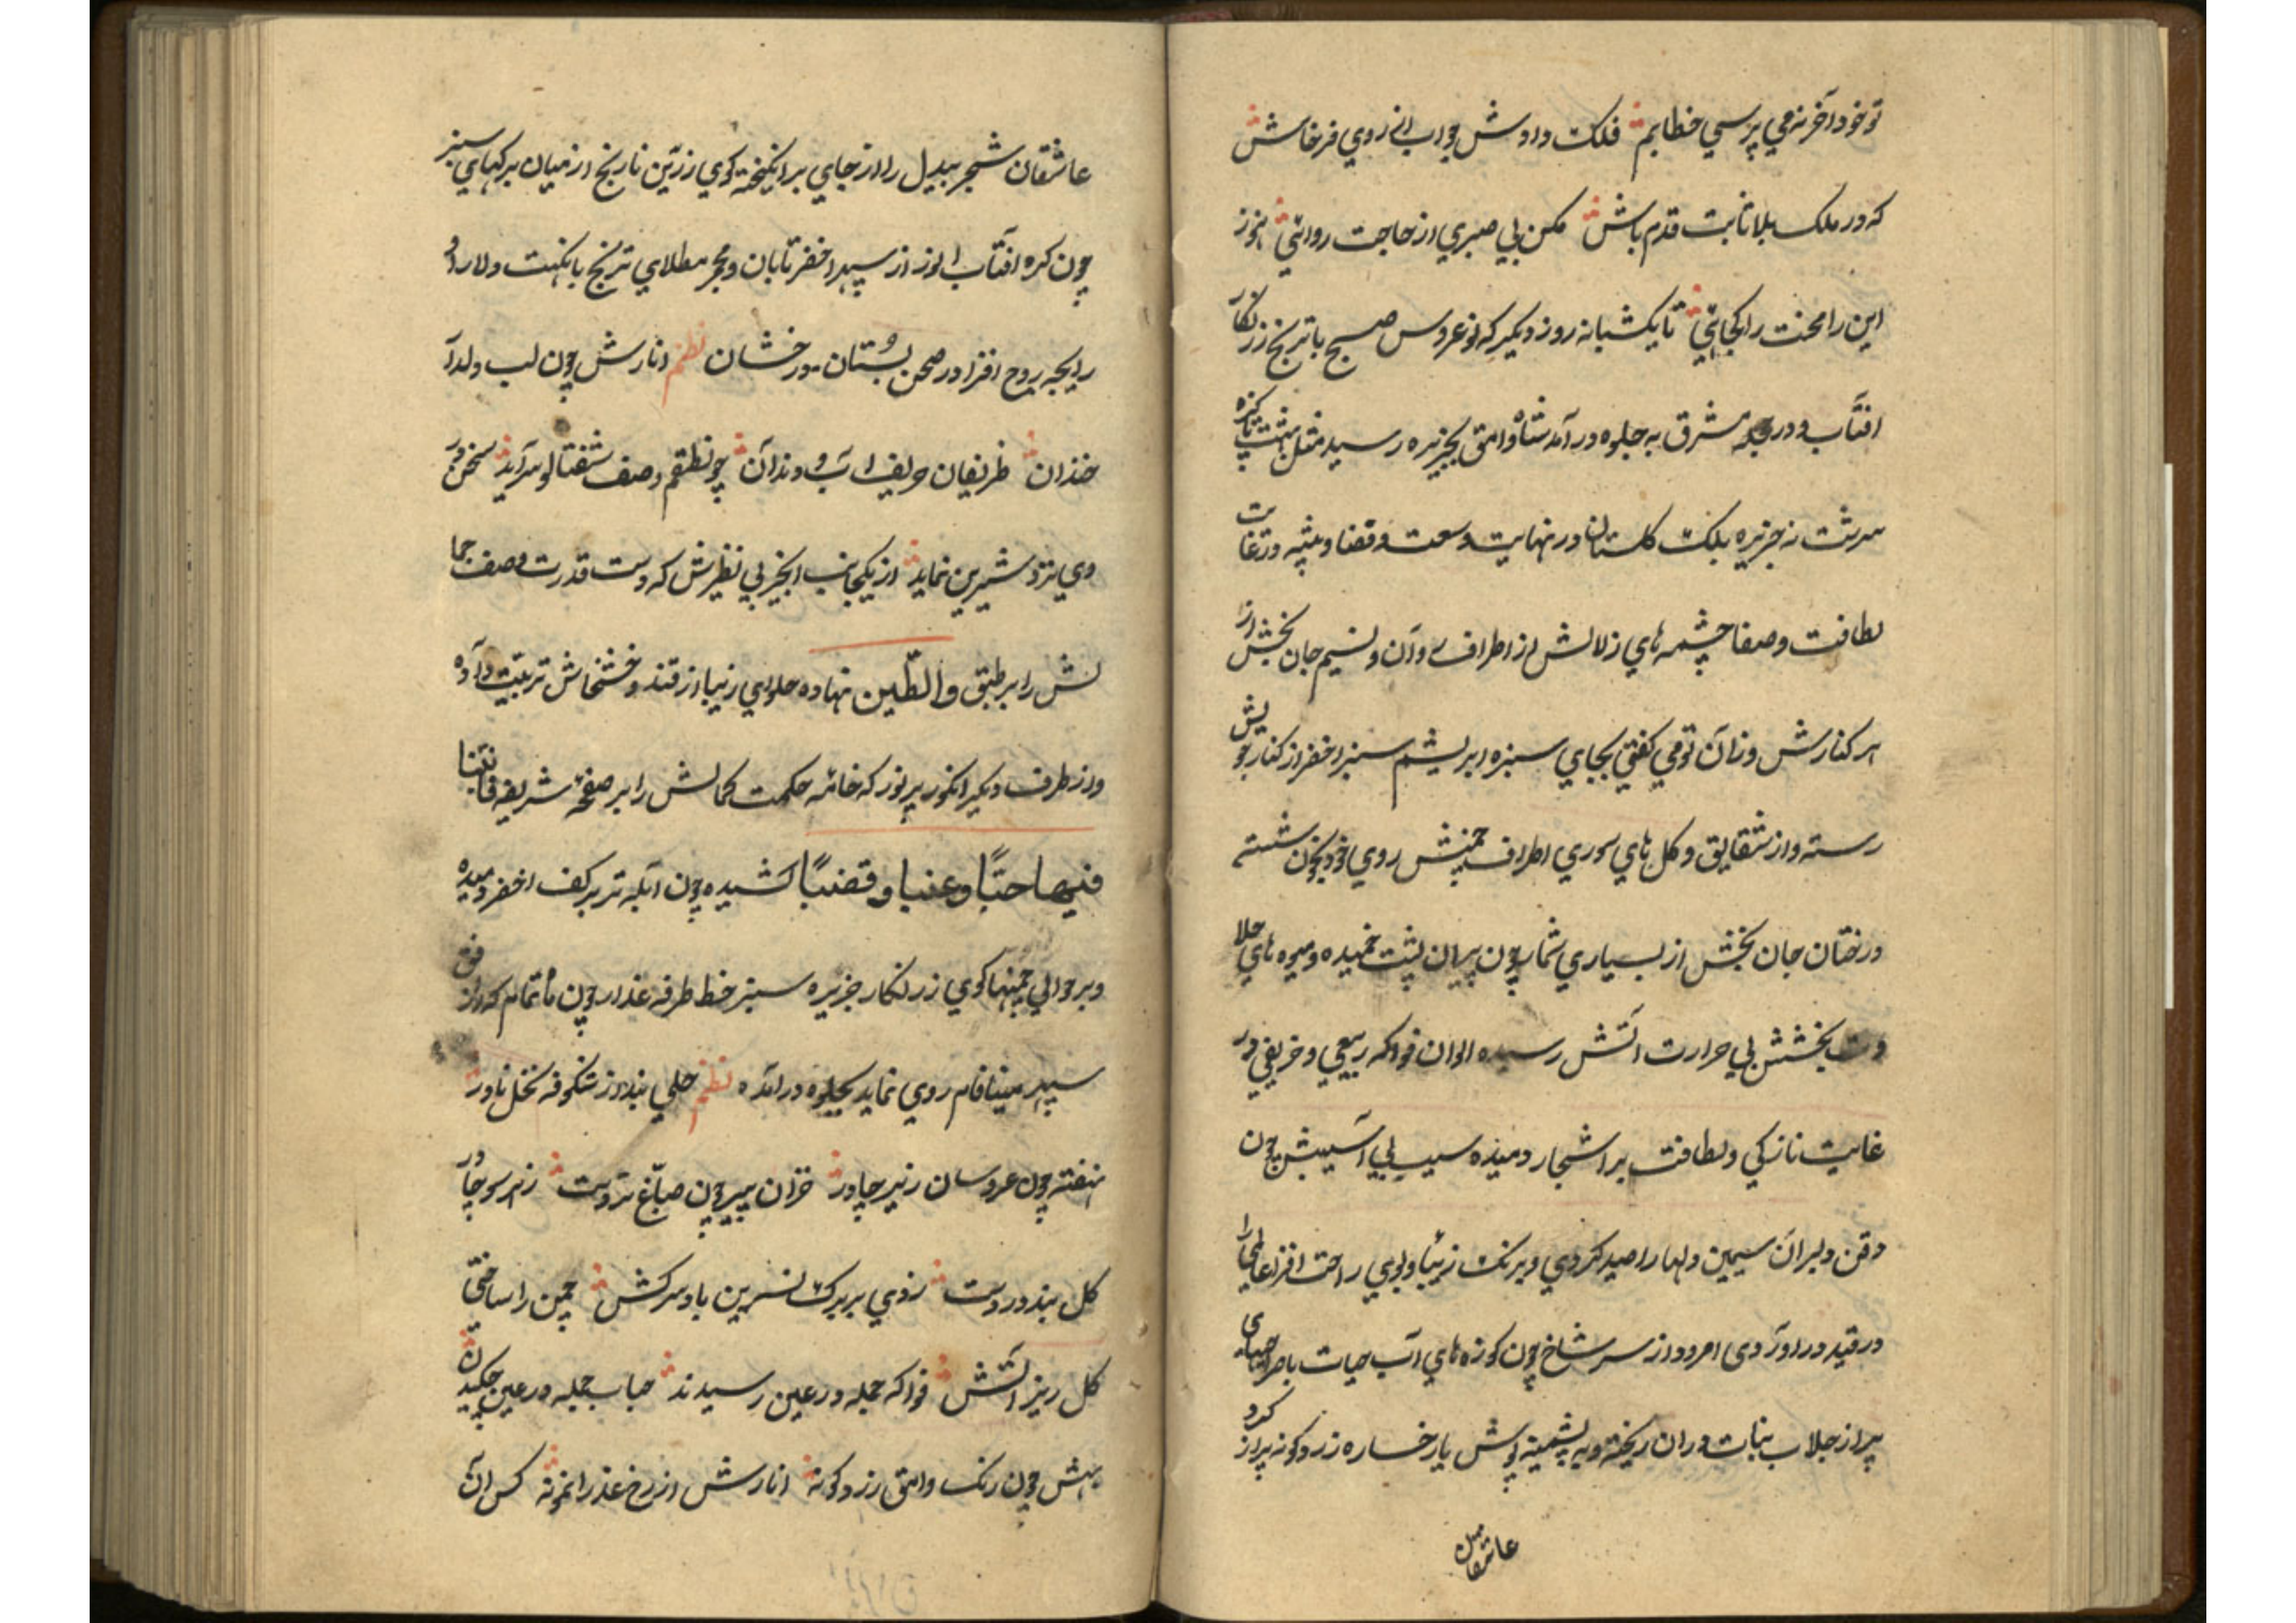 تو خود آخر نمی پرسی خطایم فلک دادش جواب از روی پرخاش
که در ملک بلا ثابت قدم باش مکن بی صبری از حاجت روائی هنوز
این را محنت را کجائی تا یکشبانه روز دیگر که نوعروس صبح با ترنج زرنگار
افتاب در دریچه مشرق به جلوه در آمد شاه وامق بجزیره رسید مثل بهشت پاکیزه
سرشت نه جزیره بلکه گلستان در نهایت وسعت و فضا و بیشه در غایت
لطافت و صفا چشمه های زلالش از اطراف روان و نسیم جان بخش از
هر کنارش وزان تو می گفتی بجای سبزه ابریشم سبز اخضر از کنار جویش
رسته و از شقایق و کل های سوری اطراف چمنش روی خود بخون شسته
درختان جان بخش از بسیاری شمار چون پیران پشت خمیده و میوه های حلا
وت بخشش بی حرارت آتش رسیده الوان فواکه ربیعی و خریفی در
غایت نازکی و لطافت بر اشجار دمیده سیب بی آسیبش چون
ذقن دلبران سیمین دلها را صید کردی و برنک زیبا و بوی راحت افزا عالمی را
در قید در اوردی امرود از سر شاخ چون کوزه های آب حیات با صراحیهای
پر از جلاب نبات دران ریخته و به پشمینه پوش با رخساره زرد کونه پر از کرد
عاشقان
عاشقان شجر بیدل را از جای بر انکیخته کوی زرین نارنج از میان برکهای سبز
چون کره افتاب انور از سپهر اخضر تابان و مجمر مطلای ترنج با نکهت دلارا و
رایحه روح افزا در صحن بستان درخشان نظم انارش چون لب دلدار
خندان ظریفان حریف آب دندان چو نطقم وصف شفتالو سراید سخن در
وی نزد شیرین نماید از یکجانب انجیر بی نظیرش که دست قدرت وصف جما
لش را بر طبق والطین نهاده حلوای زیبا از قند و خشخاش ترتیب داده
و از طرف دیکر انکور پر نور که خامه حکمت کمالش را بر صفحه شریفه فانبتنا
فیها حبًا و عنبا و قضبًا کشیده چون آبله تر بر کف اخضر دمیده
و بر حوالی چمنها کوی زرنکار جزیره سبز خط طرفه عذار چون ماه تمام که از افق
سپهر مینا فام روی نماید بجلوه در آمده نظم حلی بند از شکوفه نخل نادر
نهفته چون عروسان زیر چادر خزان پیر چون صباغ تردست ز هر سو چادر
کل بند در دست زدی بر برک نسرین باد سرکش چمن را ساختی
کل ریز آتش فواکه جمله در عین رسیدند حباب جمله در عین چکیدن
بهش چون رنک وامق زرد کونه انارش از رخ عذرا نمونه کس آن